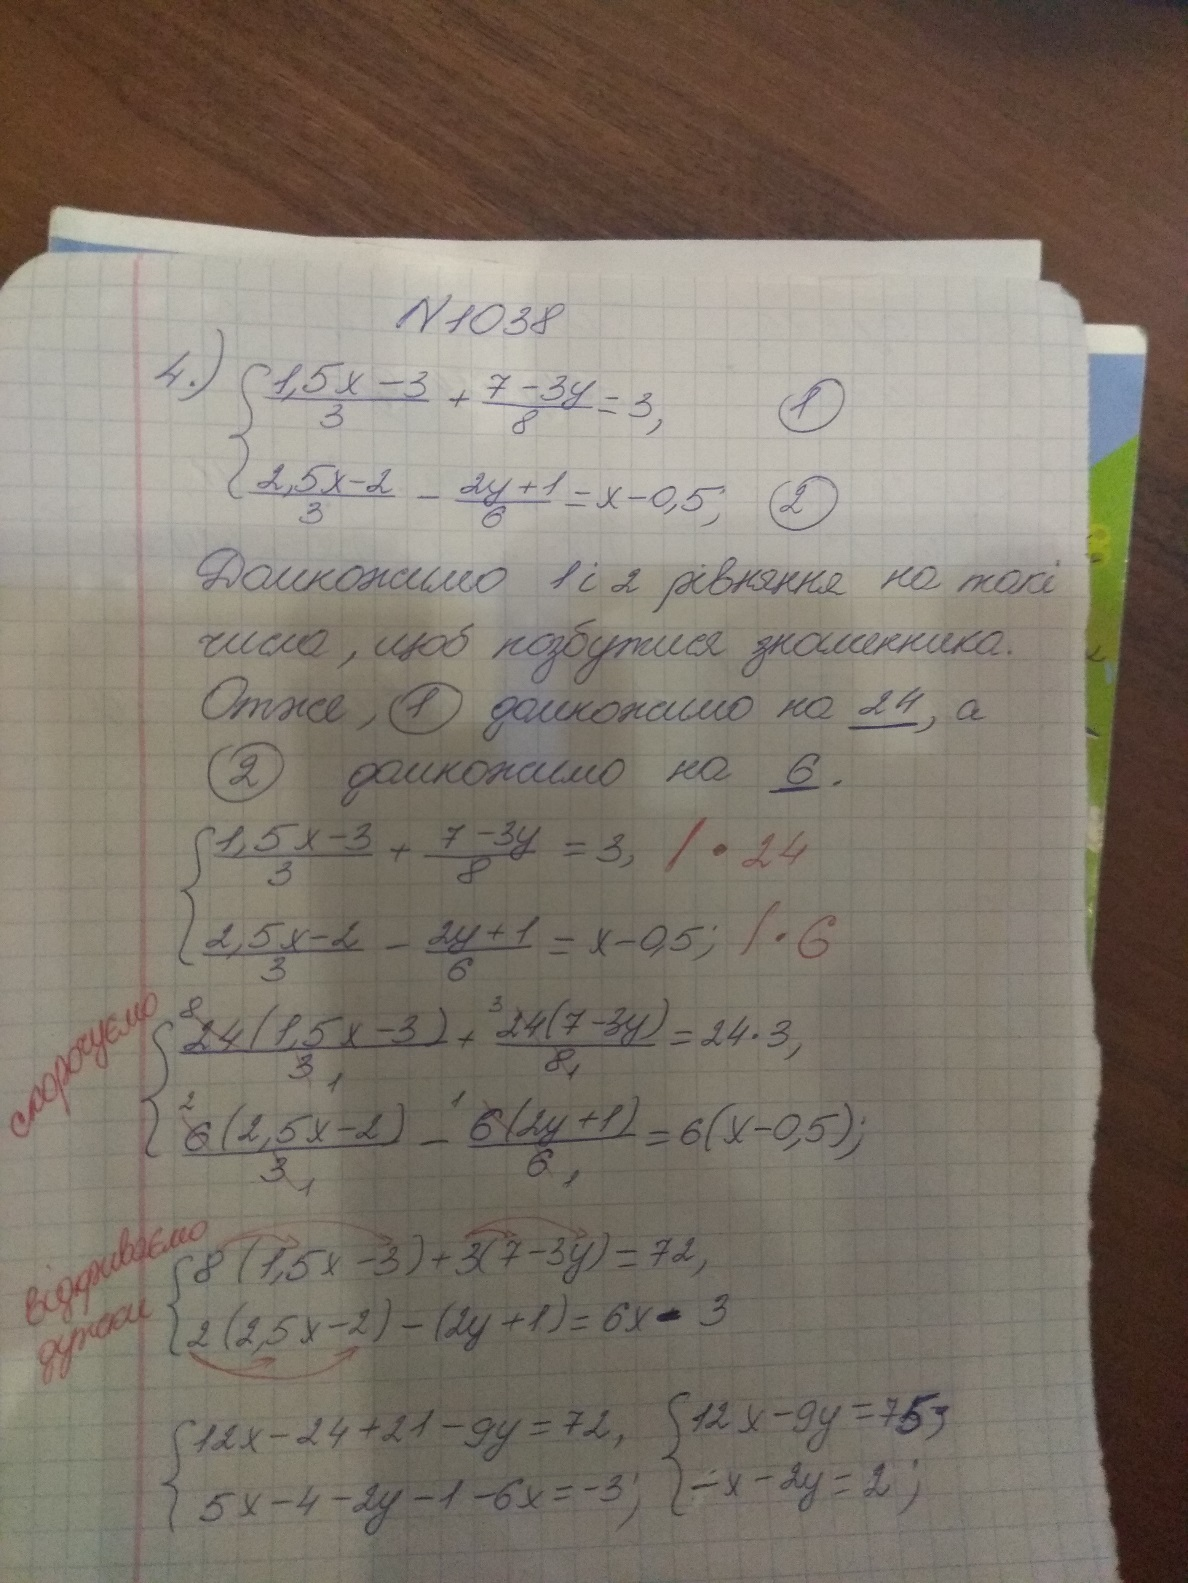 N 1038
4.) { (1,5x-3)/3 + (7-3y)/8 = 3, ①
{ (2,5x-2)/3 - (2y+1)/6 = x-0,5; ②
Домножимо 1 і 2 рівняння на такі
числа, щоб позбутися знаменника.
Отже, ① домножимо на 24, а
② домножимо на 6.
{ (1,5x-3)/3 + (7-3y)/8 = 3, / • 24
{ (2,5x-2)/3 - (2y+1)/6 = x-0,5; / • 6
скорочуємо
{ ⁸24(1,5x-3)/3₁ + ³24(7-3y)/8₁ = 24•3,
{ ²6(2,5x-2)/3₁ - ¹6(2y+1)/6₁ = 6(x-0,5);
відкриваємо
дужки
{ 8(1,5x-3)+3(7-3y)=72,
{ 2(2,5x-2)-(2y+1)=6x-3
{ 12x-24+21-9y=72, { 12x-9y=75;
{ 5x-4-2y-1-6x=-3; { -x-2y=2;